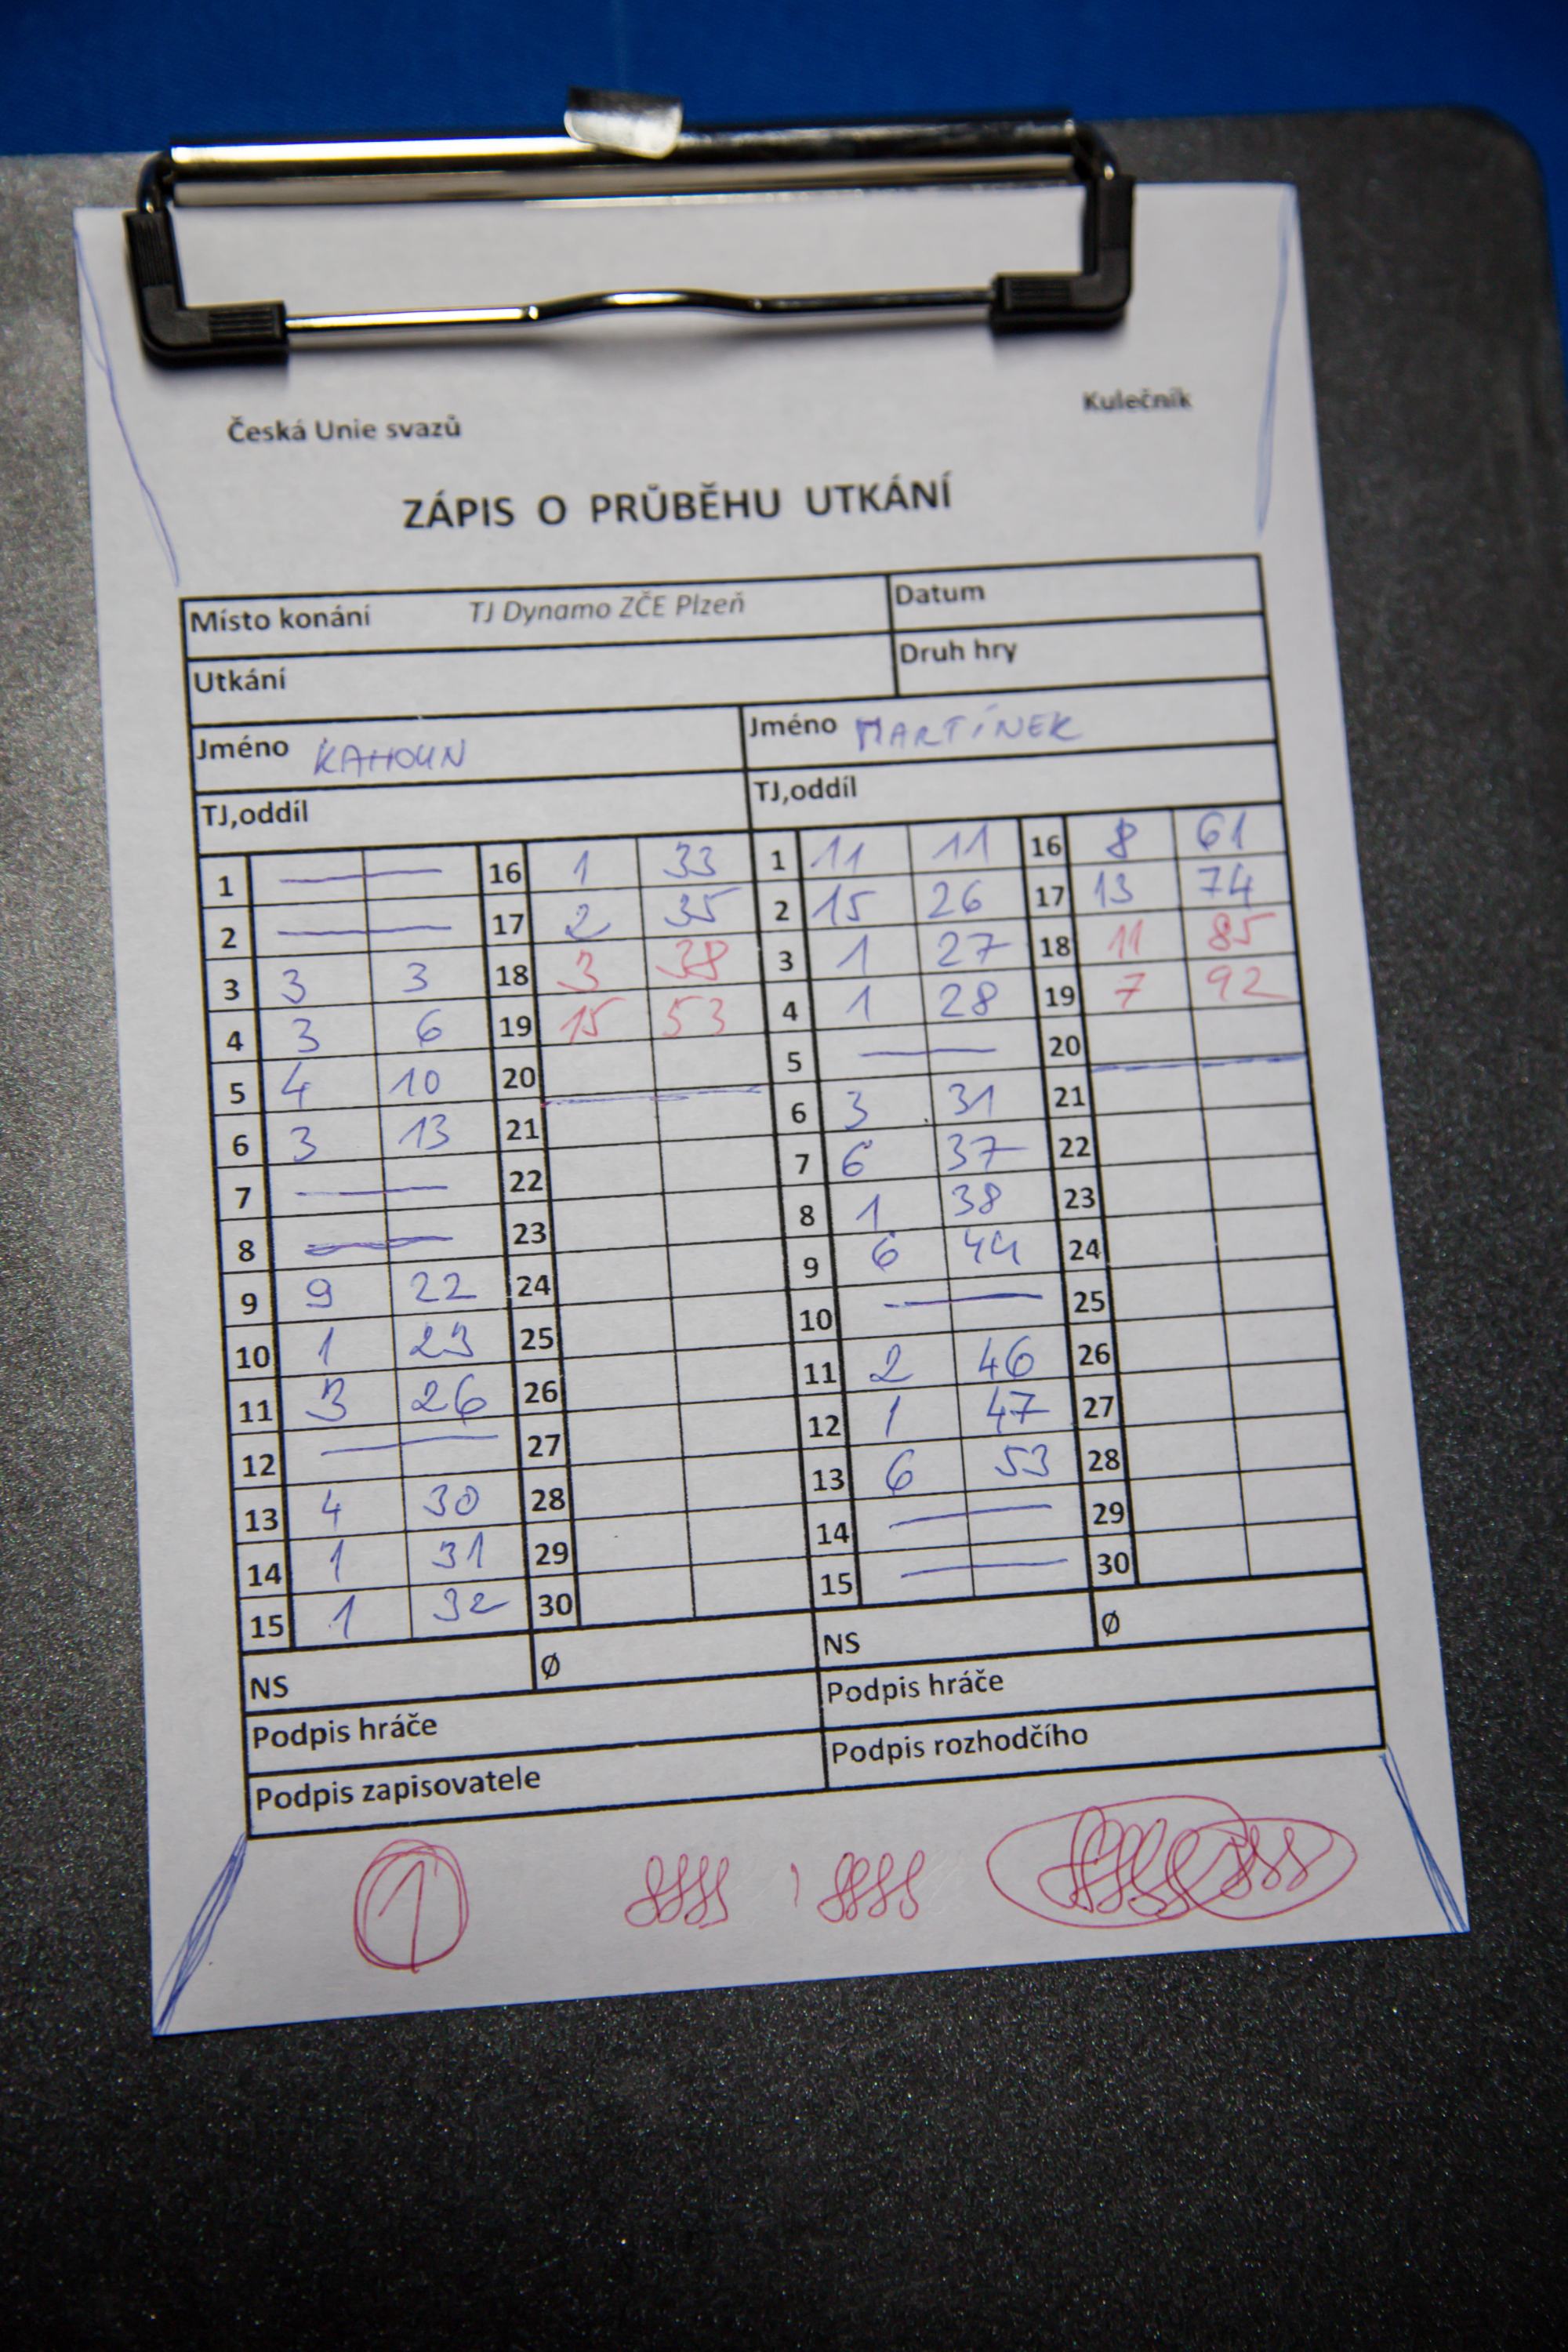 Česká Unie svazů Kulečník
ZÁPIS O PRŮBĚHU UTKÁNÍ
Místo konání TJ Dynamo ZČE Plzeň Datum
Utkání Druh hry
Jméno KAHOUN Jméno MARTÍNEK
TJ,oddíl TJ,oddíl
1 — 16 1 33 1 11 11 16 8 61
2 — 17 2 35 2 15 26 17 13 74
3 3 3 18 3 38 3 1 27 18 11 85
4 3 6 19 15 53 4 1 28 19 7 92
5 4 10 20 5 — 20
6 3 13 21 6 3 31 21
7 — 22 7 6 37 22
8 — 23 8 1 38 23
9 9 22 24 9 6 44 24
10 1 23 25 10 — 25
11 3 26 26 11 2 46 26
12 — 27 12 1 47 27
13 4 30 28 13 6 53 28
14 1 31 29 14 — 29
15 1 32 30 15 — 30
NS Ø NS Ø
Podpis hráče Podpis hráče
Podpis zapisovatele Podpis rozhodčího
1